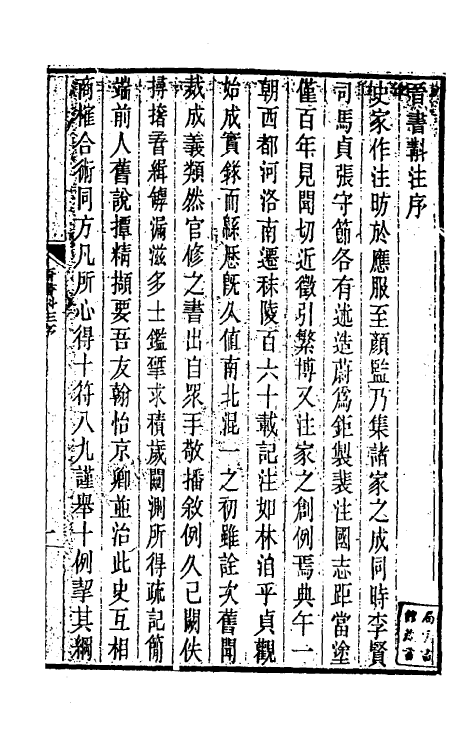 晉書斠注序
史家作注昉於應服至顏監乃集諸家之成同時李賢
司馬貞張守節各有述造蔚爲鉅製裴注國志距當塗
僅百年見聞切近徵引繁博又注家之創例焉典午一
朝西都河洛南遷秣陵百六十載記注如林洎乎貞觀
始成實錄而緜歷旣久值南北混一之初雖詮次舊聞
裁成義類然官修之書出自眾手敬播敘例久已闕佚
撏撦眢緝罅漏滋多士鑑犖求積歲闚測所得疏記簡
端前人舊說撢精擷要吾友翰怡京卿並治此史互相
商榷合術同方凡所心得十符八九謹舉十例挈其綱
晉書斠注序
一